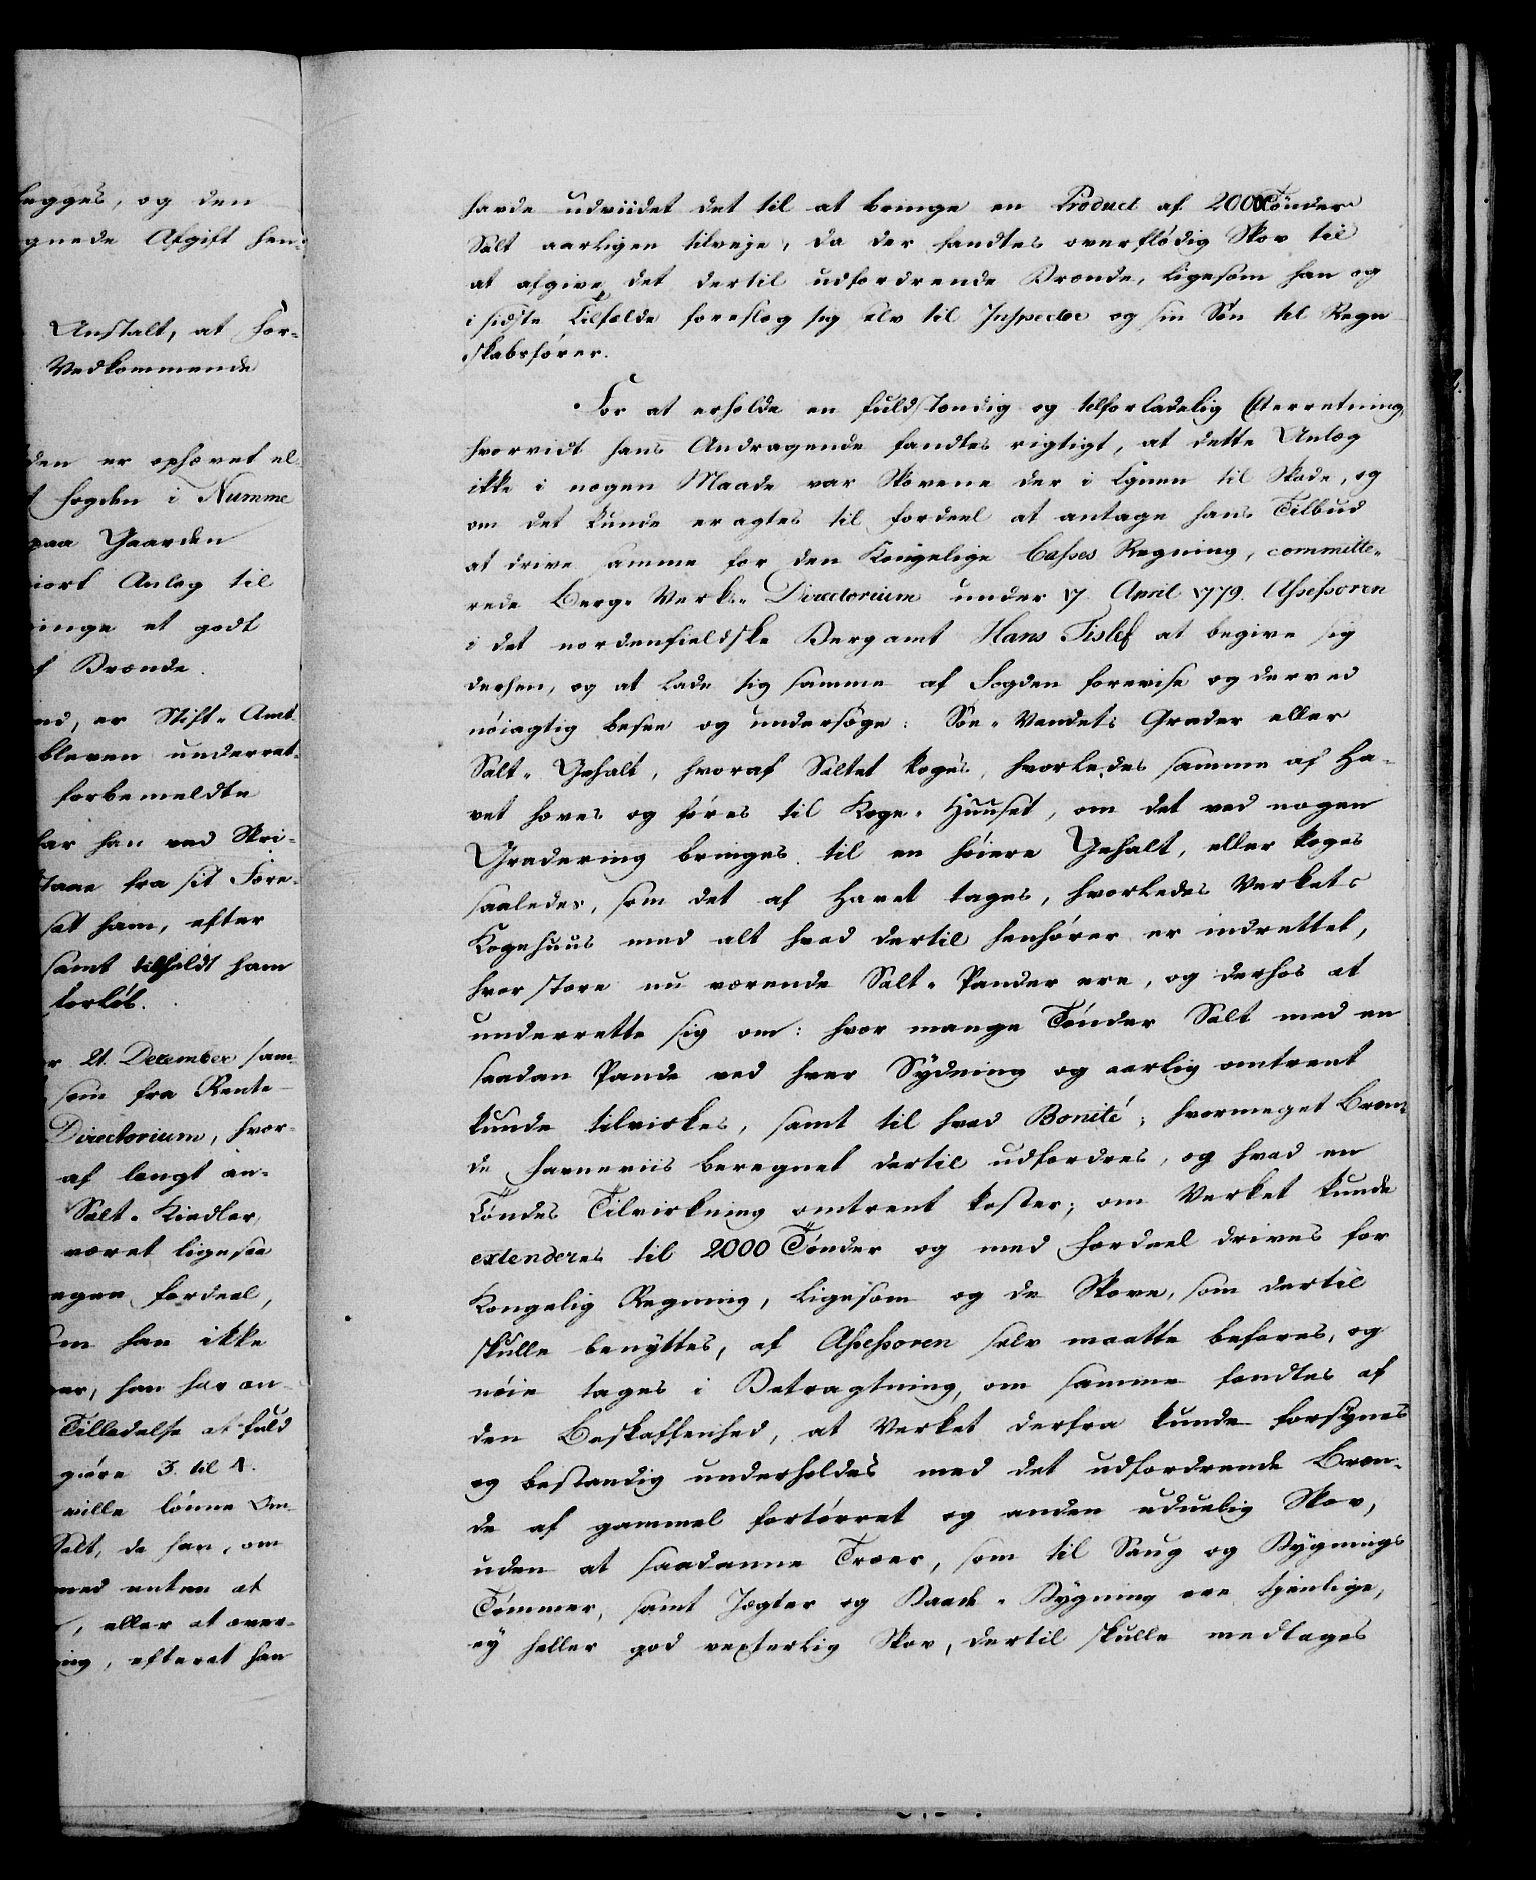 legges, og den
gnede Afgift hen-
Anstalt, at For-
Vedkommende
den er ophævet el-
fogden i Numme
paa Gaarden
giort Anlæg til
bringe et godt
af Brænde.
ind, er Stift-Amt-
bleven underret-
forbemeldte
har han ved Skri-
staae fra sit Fore-
sat ham, efter
samt tilholdt ham
forløb.
r 21. December sam-
som fra Rente
Directorium, hvor-
af langt an-
Salt-Kiedler,
været ligesaa
egen fordeel,
som han ikke
er, han har an-
Tilladelse at fuld
giøre 3. til 4.
ville lønne Om-
Salt, da han, om
med enten at
, eller at over-
ning, efterat han
havde udviidet det til at bringe en Product af 2000 Tønder
Salt aarligen tilveje, da der fandtes overflødig Skov til
at afgive det dertil udfordrende Brænde, ligesom han og
i sidste Tilfælde foreslog sig selv til Inspecteur og sin Søn til Regn
skabsfører.
For at erholde en fuldstændig og tilforladelig Efterretning,
hvorvidt hans Andragende fandtes rigtigt, at dette Anlæg
ikke i nogen Maade var Skovene der i Egnen til Skade, og
om det kunde eragtes til fordeel at antage hans Tilbud
at drive samme for den Kongelige Casses Regning, committe-
rede Berg-Verks-Directorium under 17 April 1779. Assessoren
i det nordenfieldske Bergamt Hans Fislef at begive sig
derhen, og at lade sig samme af Fogden forevise og derved
nøiagtig besee og undersøge: Søe-Vandets Grader eller
Salt-Gehalt, hvoraf Saltet koges, hvorledes samme af Ha-
vet hæves og føres til Koge-Huuset, om det ved nogen
Gradering bringes til en høiere Gehalt, eller koges
saaledes, som det af Havet tages, hvorledes Verkets
Kogehuus med alt hvad dertil henhører er indrettet,
hvor store nu værende Salt-Pander ere, og derhos at
underrette sig om: hvor mange Tønder Salt med en
saadan Pande ved hver Sydning og aarlig omtrent
kunde tilvirkes, samt til hvad Bonité; hvormeget Bræn-
de favneviis beregnet dertil udfordres, og hvad en
Tøndes Tilvirkning omtrent koster; om Verket kunde
extenderes til 2000 Tønder og med fordeel drives for
Kongelig Regning, ligesom og de Skove, som dertil
skulle benyttes, af Assessoren selv maatte befares, og
nøie tages i Betragtning, om samme fandtes af
den Beskaffenhed, at Verket derfra kunde forsynes
og bestandig underholdes med det udfordrende Bræn-
de af gammel fortørret og anden uduelig Skov,
uden at saadanne Træer, som til Saug og Bygnings
Tømmer, samt Jægter og Baade-Bygning ere tjenlige,
ey heller god vexterlig Skov, dertil skulle medtages